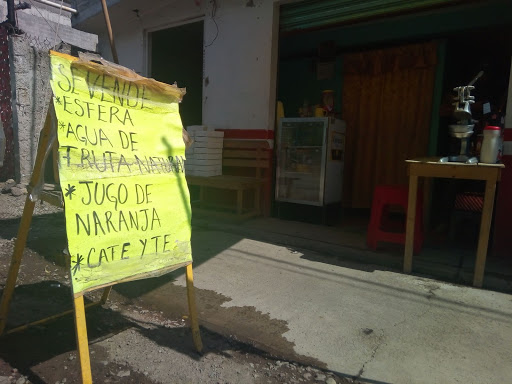 SE VENDE
*ESFERA
*AGUA DE
FRUTA NATURAL
* JUGO DE
NARANJA
*CAFE Y TE